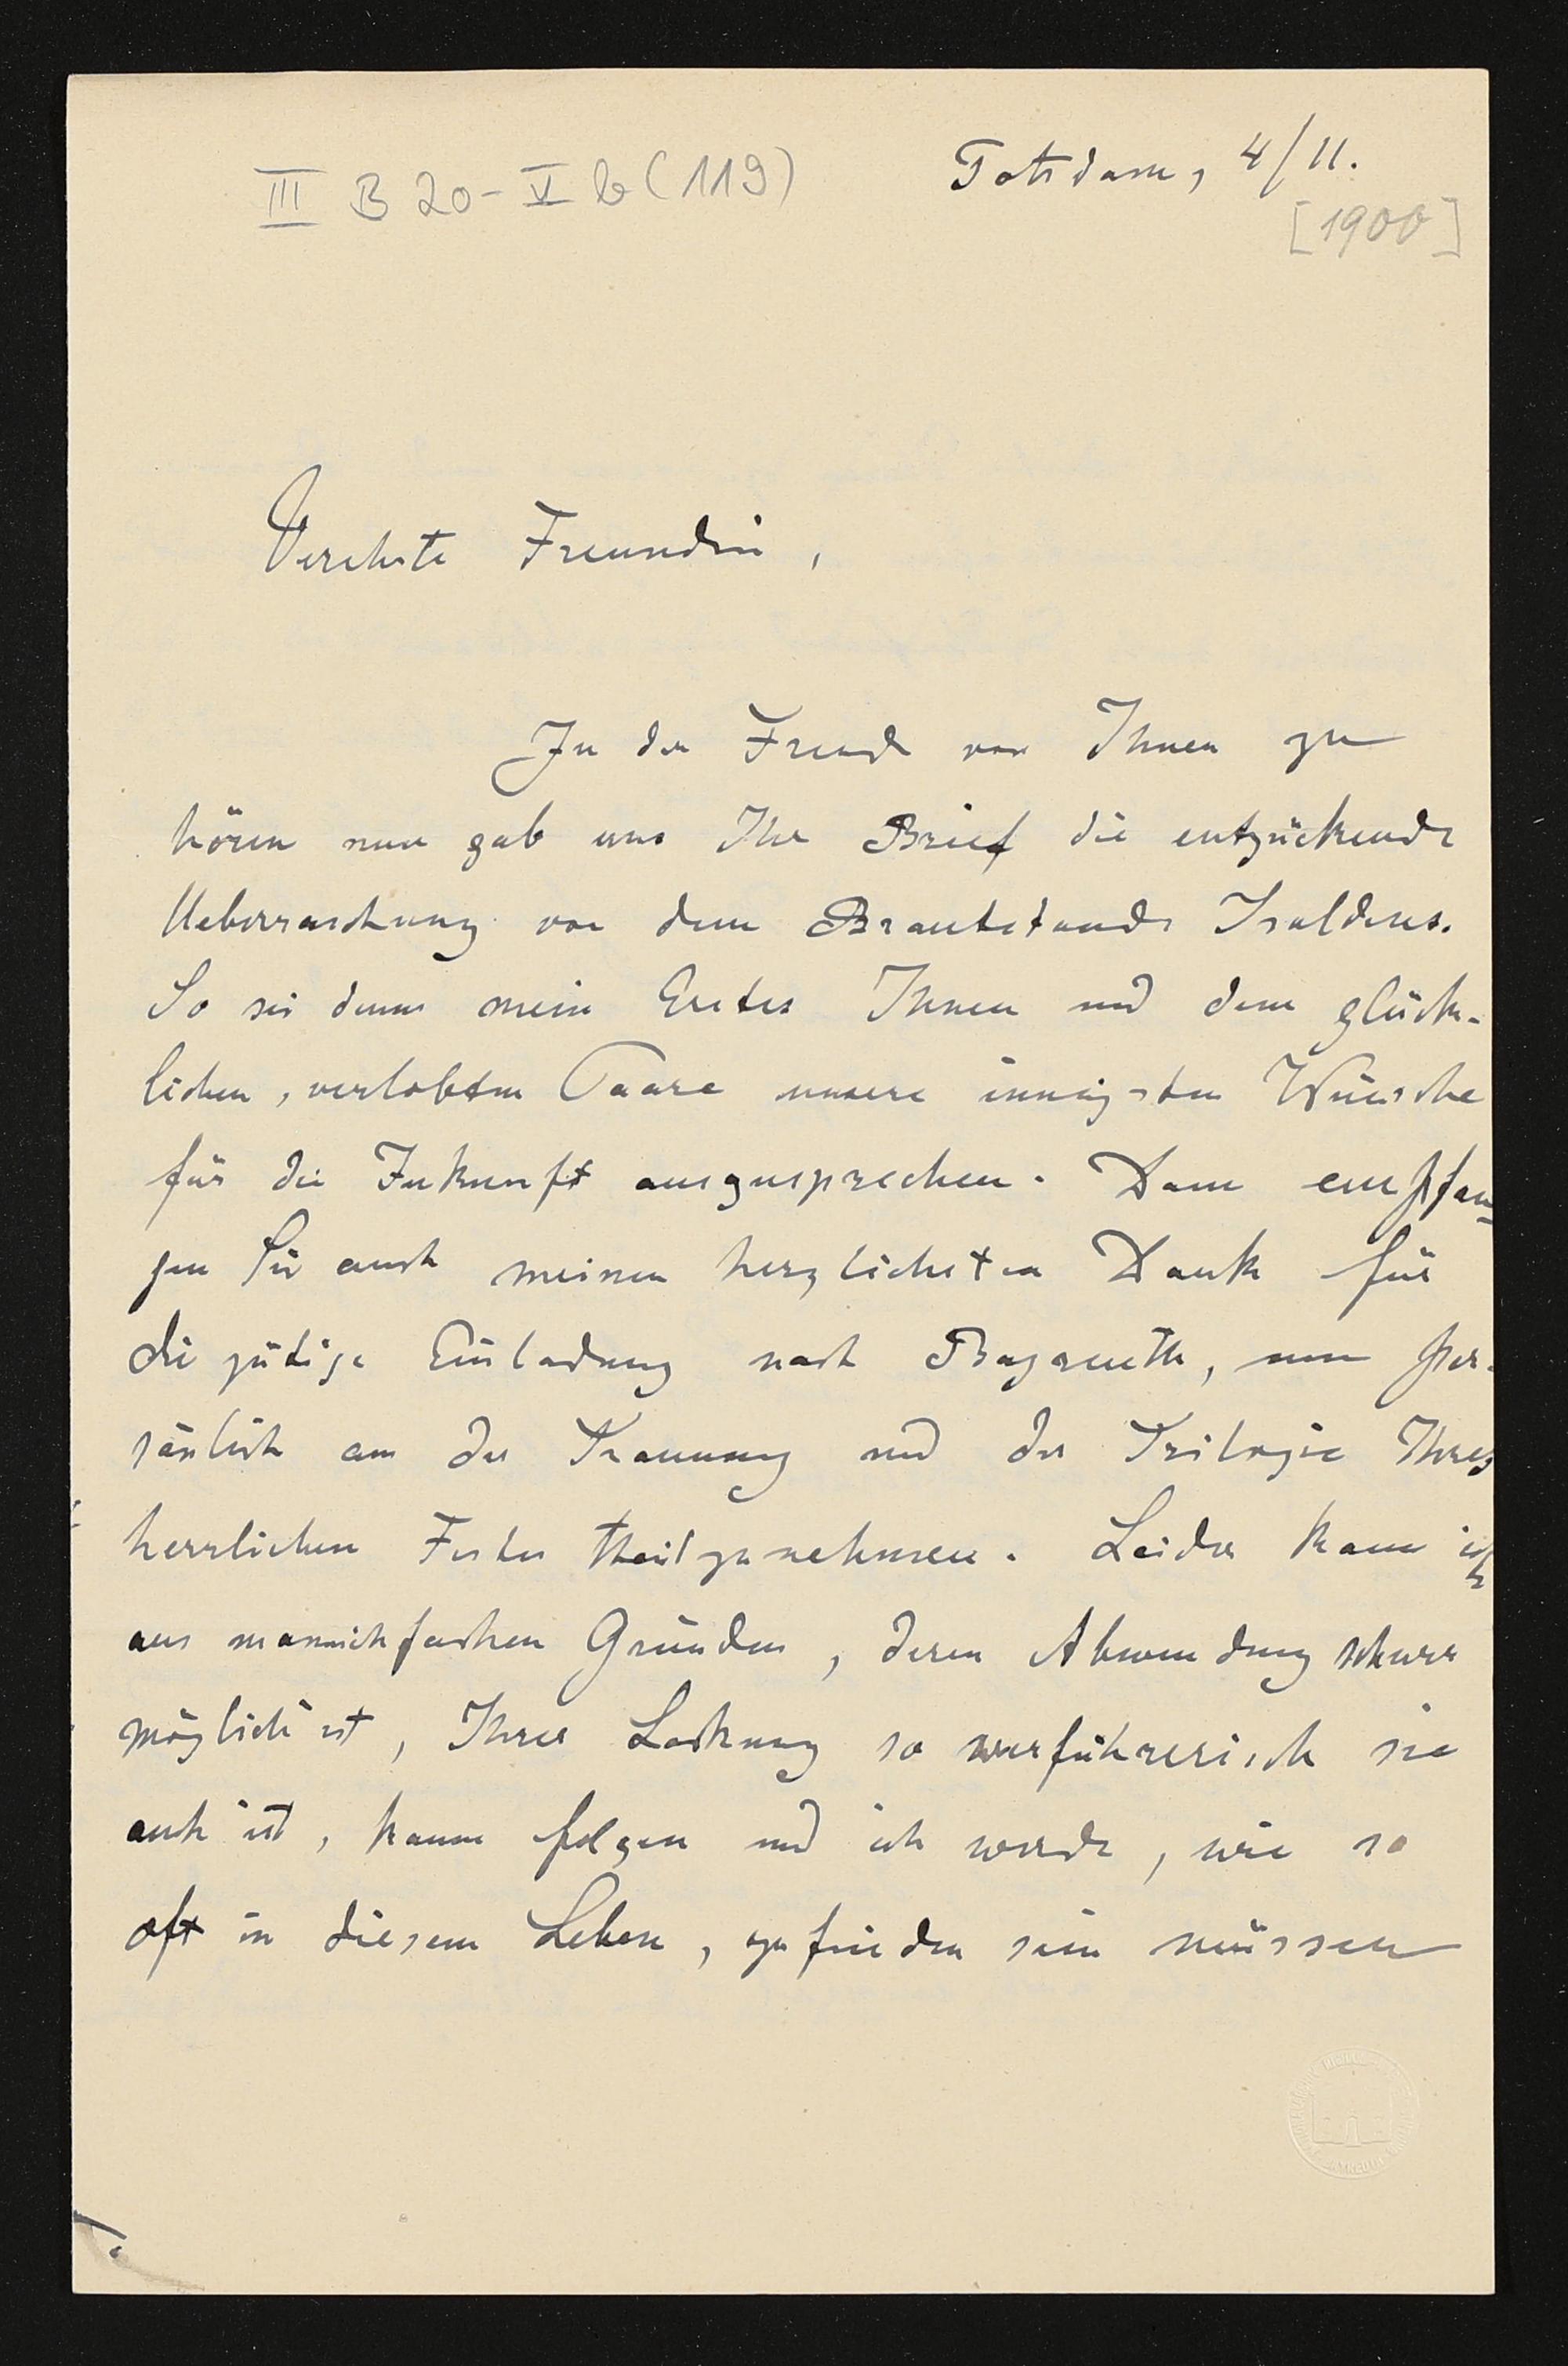 III B 20 - V b (119)
Potsdam, 4/11.
[1900]
Verehrte Freundin,
In der Freude von Ihnen zu
hören nun gab uns Ihr Brief die entzückende
Ueberraschung von dem Brautstande Isoldens.
So sei denn mein Erstes Ihnen und dem glück-
lichen, verlobten Paare unsere innigsten Wünsche
für die Zukunft auszusprechen. Dann empfan-
gen Sie auch meinen herzlichsten Dank für
die gütige Einladung nach Bayreuth, um per-
sönlich an der Trauung und der Trilogie Ihres
herrlichen Festes theilzunehmen. Leider kann ich
aus mannichfachen Gründen, deren Abwendung schwer
möglich ist, Ihrer Lockung so verführerisch sie
auch ist, kaum folgen und ich werde, wie so
oft in diesem Leben, zufrieden sein müssen